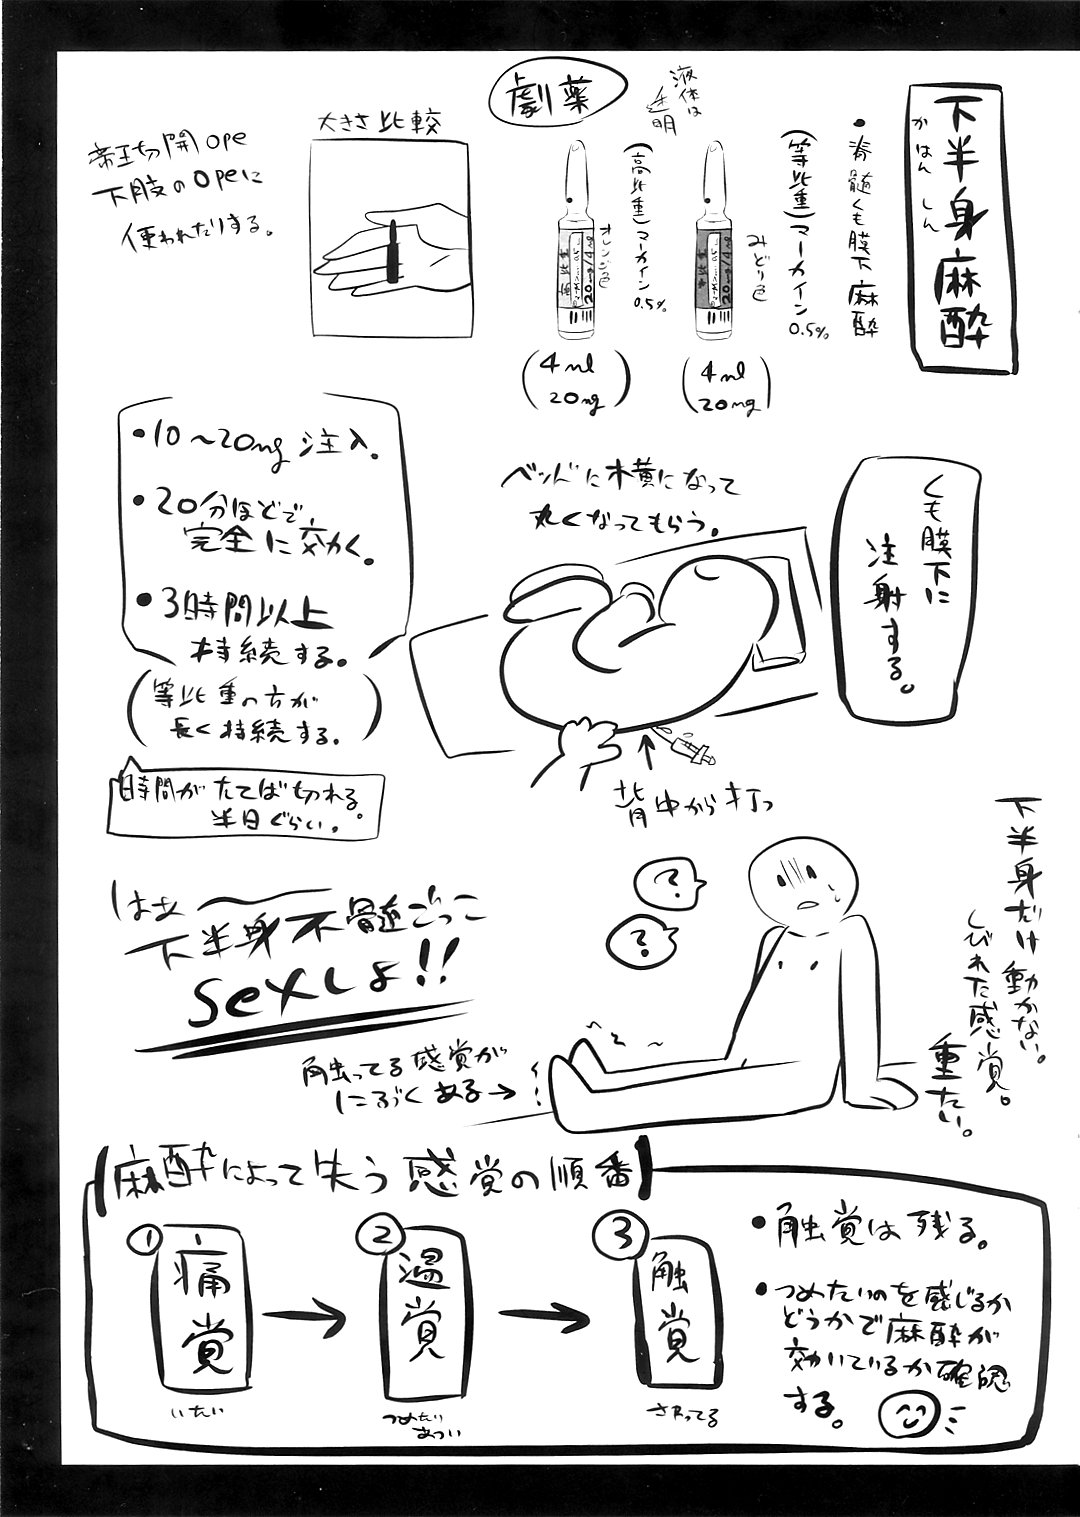 下半身麻酔
かはんしん
・脊髄くも膜下麻酔
(等比重)マーカイン0.5%
みどり色
液体は
透明
(高比重)マーカイン0.5%
オレンジ色
劇薬
20mg/4ml
20mg/4ml
(4ml
20mg)
(4ml
20mg)
大きさ比較
帝王切開ope
下肢のopeに
使われたりする。
くも膜下に
注射する。
ベッドに横になって
丸くなってもらう。
背中から打つ
・10〜20mg注入。
・20分ほどで
完全に効く。
・3時間以上
持続する。
(等比重の方が
長く持続する。)
時間がたてば切れる。
半日ぐらい。
下半身だけ動かない。
しびれた感覚。
重たい。
?
?
はぁ〜
下半身不髄ごっこ
sexしよ!!
触ってる感覚が
にぶくある→
麻酔によって失う感覚の順番
①痛覚
いたい
②温覚
つめたい
あつい
③触覚
さわってる
・触覚は残る。
・つめたいのを感じるか
どうかで麻酔が
効いているか確認
する。